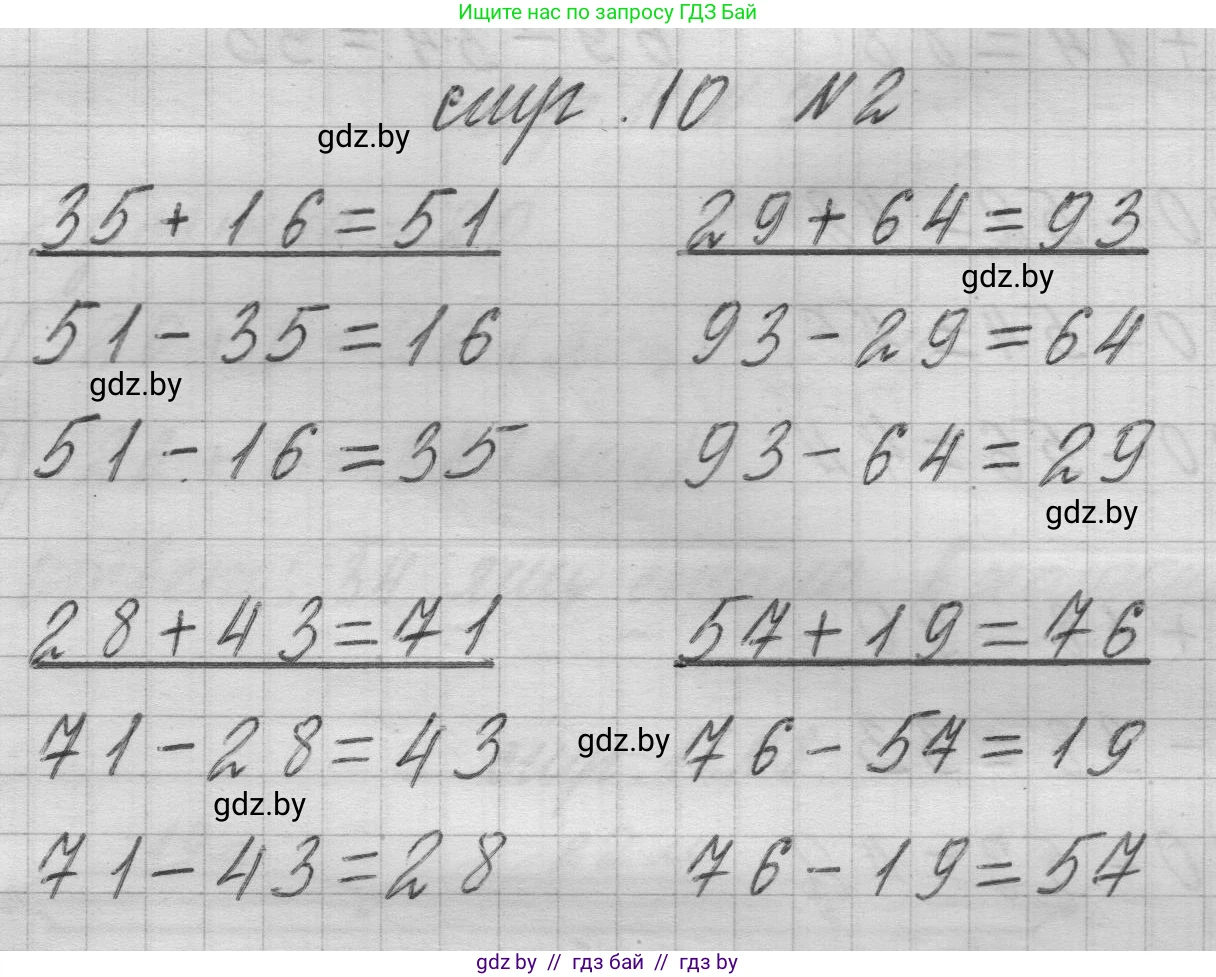 Ищите нас по запросу ГДЗ Бай
стр. 10 №2
gdz.by
35+16=51 29+64=93
gdz.by
51-35=16 93-29=64
gdz.by
51-16=35 93-64=29
gdz.by
28+43=71 57+19=76
71-28=43 76-57=19
gdz.by
gdz.by
71-43=28 76-19=57
gdz.by // гдз бай // gdz by